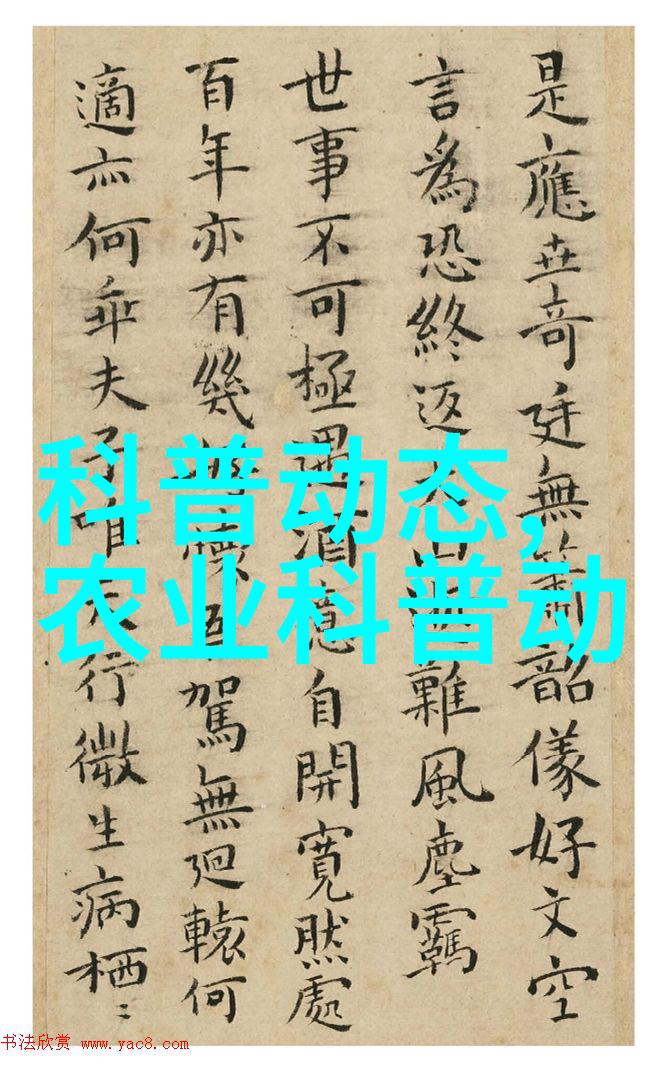 是應世奇廷無韶儀好文空
言為恐終返難風塵羈
世事不可極遇酒意自開寬然處
百年亦有幾懷駕無迴轅何
適亦何乖夫子行微生病栖〻
科普动态,
农业科普动
书法欣赏 www.yac8.com